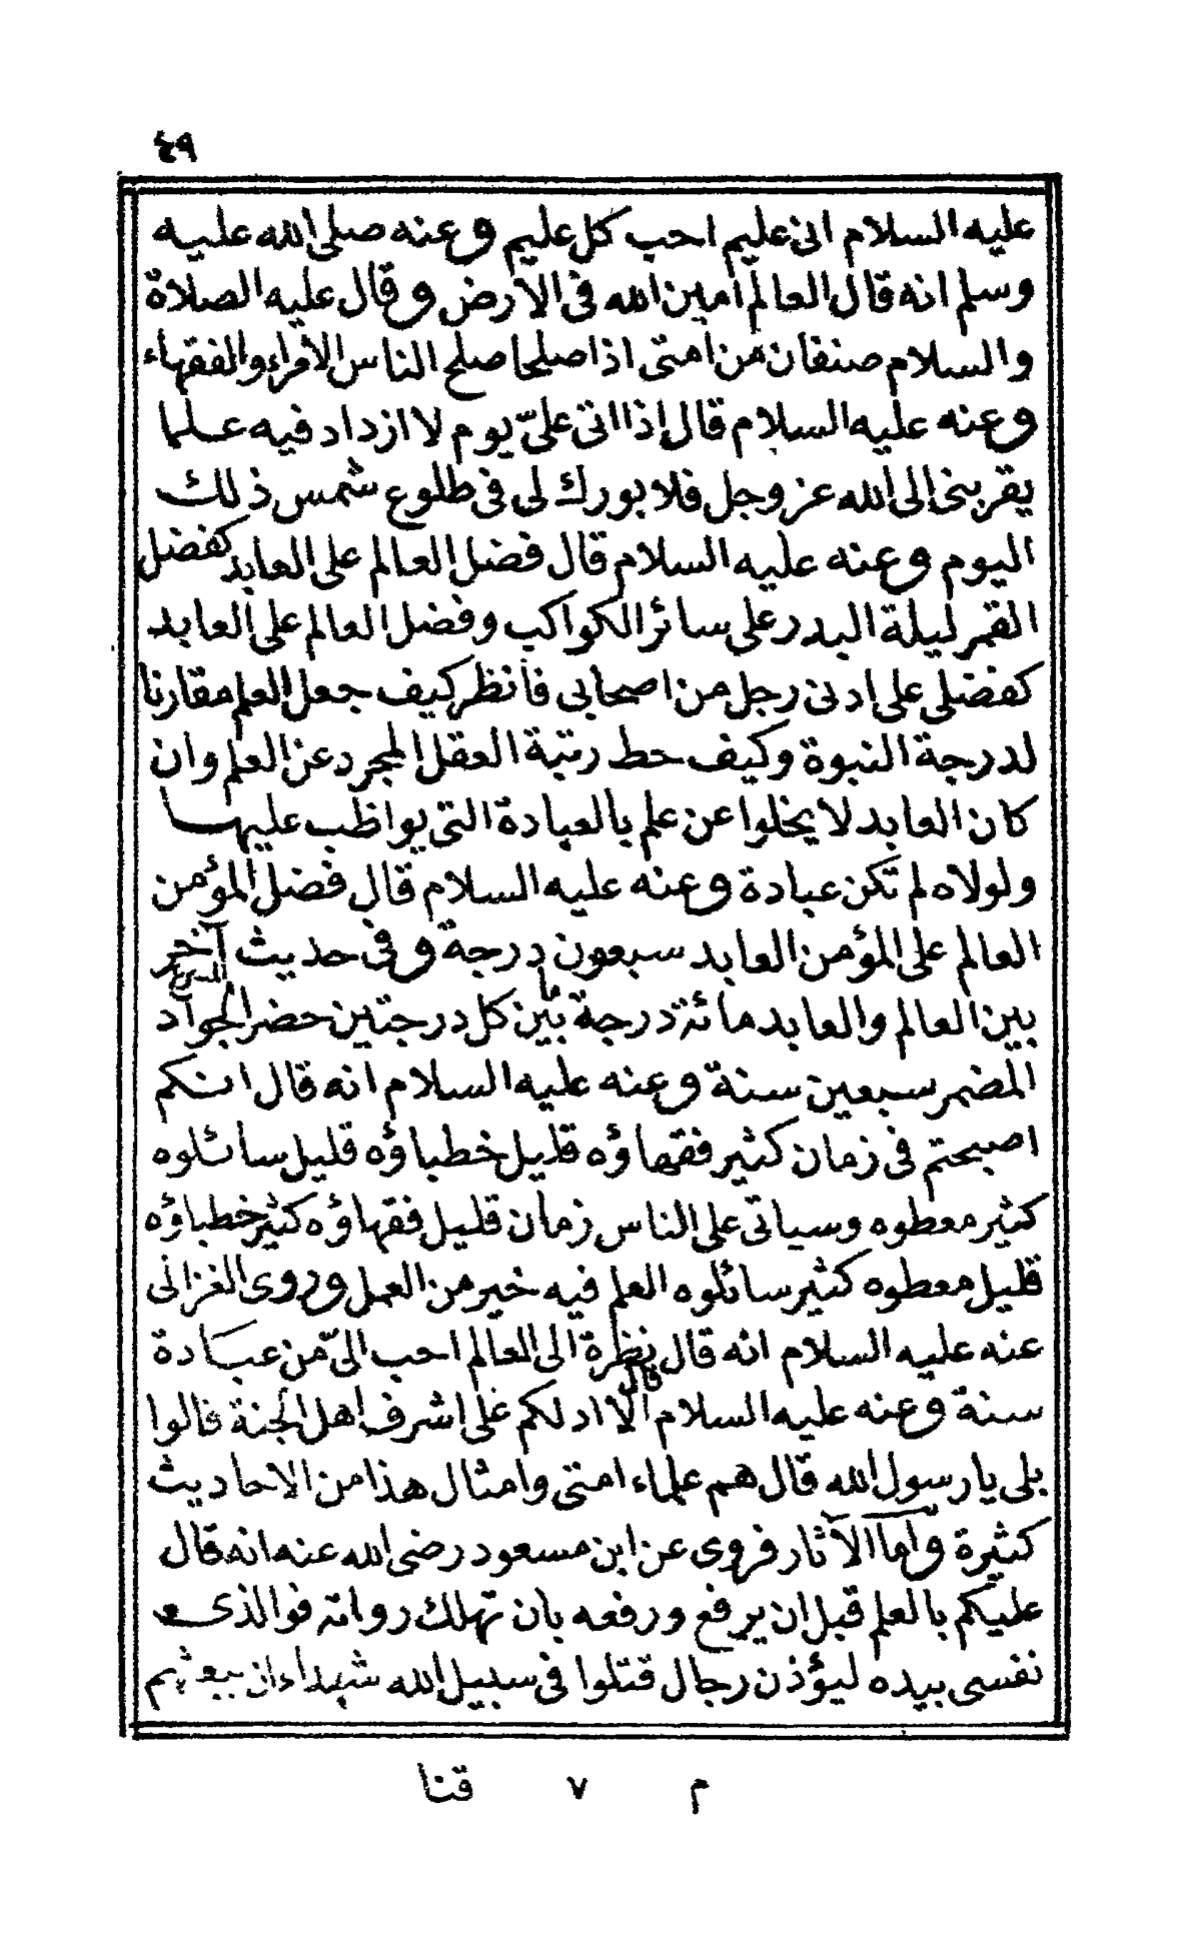 ٤٩
عليه السلام انى عليم احب كل عليم وعنه صلى الله عليه
وسلم انه قال العالم أمين الله فى الارض وقال عليه الصلاة
والسلام صنفان من امتى اذا صلحا صلح الناس الأمراء والفقهاء
وعنه عليه السلام قال إذا اتى علىّ يوم لا ازداد فيه علما
يقربنى إلى الله عز وجل فلا بورك لى فى طلوع شمس ذلك
اليوم وعنه عليه السلام قال فضل العالم على العابد كفضل
القمر ليلة البدر على سائر الكواكب وفضل العالم على العابد
كفضلى على ادنى رجل من اصحابى فانظر كيف جعل العلم مقارنا
لدرجة النبوة وكيف حط رتبة العقل المجرد عن العلم وان
كان العابد لا يخلوا عن علم بالعبادة التى يواظب عليها
ولولاه لم تكن عبادة وعنه عليه السلام قال فضل المؤمن
العالم على المؤمن العابد سبعون درجة وفى حديث آخر
بين العالم والعابد مائة درجة ما بين كل درجتين حضر الجواد
المضمر سبعين سنة وعنه عليه السلام انه قال انكم
اصبحتم فى زمان كثير فقهاؤه قليل خطباؤه قليل سائلوه
كثير معطوه وسياتى على الناس زمان قليل فقهاؤه كثير خطباؤه
قليل معطوه كثير سائلوه العلم فيه خير من العمل وروى الغزالى
عنه عليه السلام انه قال نظرة الى العالم احب الىّ من عبادة
سنة وعنه عليه السلام قال الا ادلكم على اشرف اهل الجنة قالوا
بلى يا رسول الله قال هم علماء امتى وامثال هذا من الاحاديث
كثيرة وّأما الآثار فروى عن ابن مسعود رضى الله عنه انه قال
عليكم بالعلم قبل ان يرفع ورفعه بان تهلك رواته فو الذى
نفسى بيده ليؤذن رجال قتلوا فى سبيل الله شهداء ان يبعثهم
م ٧ قنا